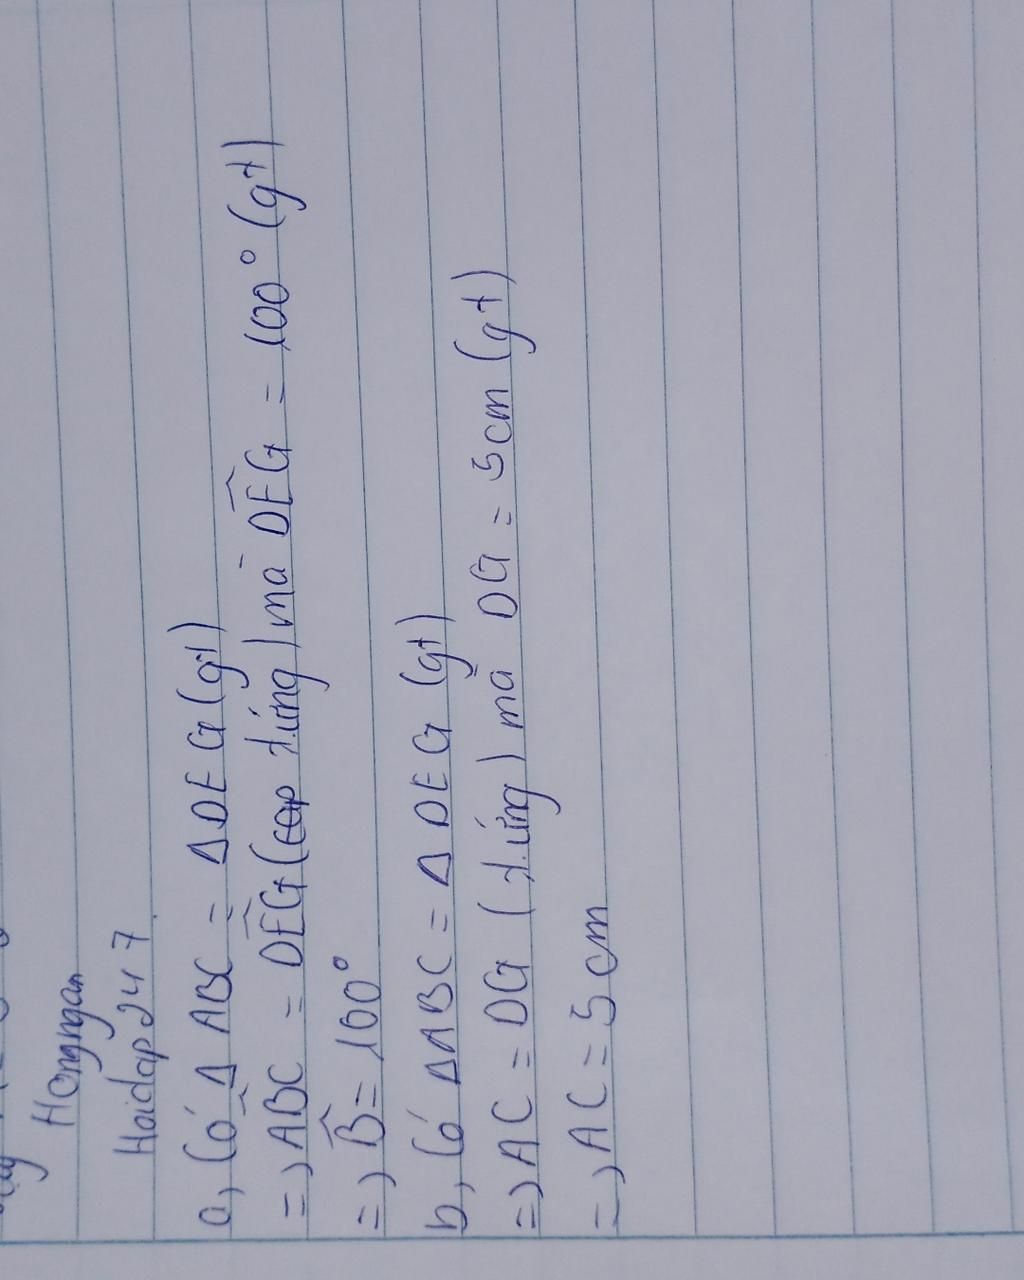 Hongngan
Hoidap247
a, Có Δ ABC = ΔDEG (gt)
=> ABC = DEG (cặp t.ứng) mà DEG = 100° (gt)
=> B = 100°
b, Có ΔABC = ΔDEG (gt)
=> AC = DG (t.ứng) mà DG = 5cm (gt)
=> AC = 5cm